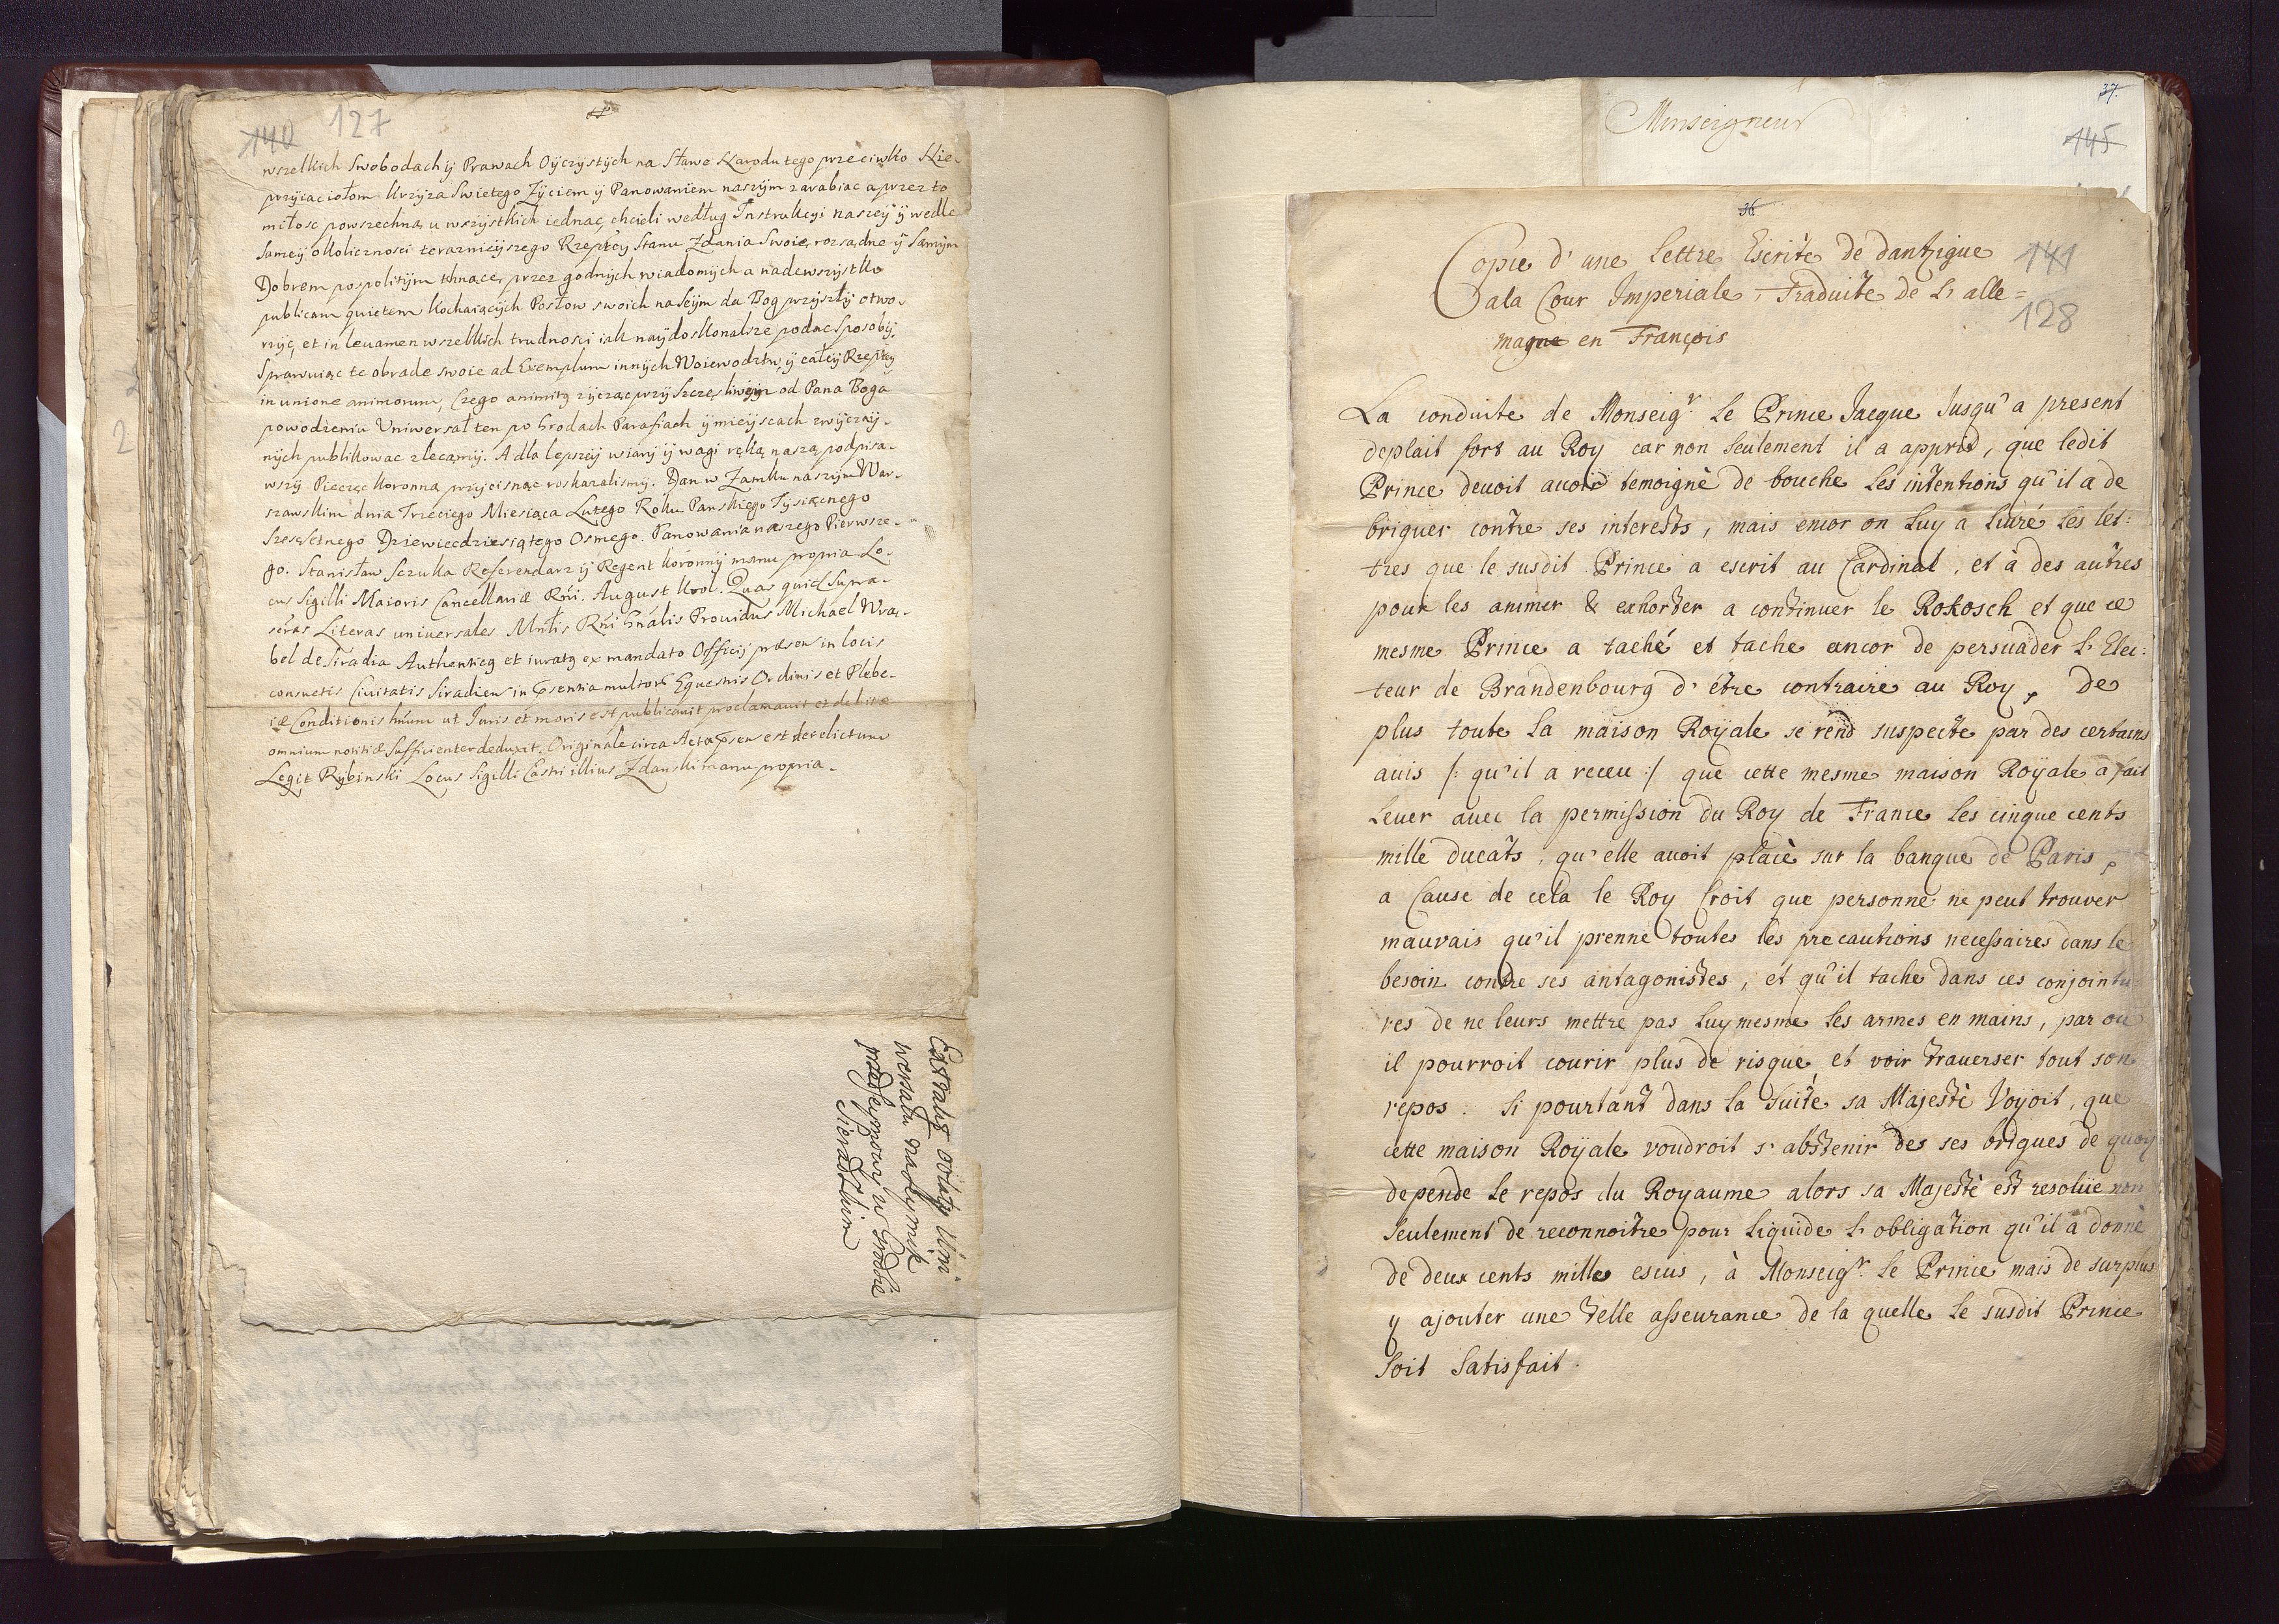 140 127
wszelkich Swobodach ÿ Prawach Oÿczÿstÿch na Sławe Narodu tego przeciwko Nie-
przÿiaciołom Krzÿza Swietego Zÿciem ÿ Panowaniem naszÿm zarabiac a przez to
miłosc powszechną u wszÿstkich iednac, chcieli według Instrukcÿi naszeÿ ÿ wedle
Sameÿ okolicznosci teraznieÿszego Rzeptey Stanu Zdania Swoie, rozsądne ÿ Samÿm
Dobrem pospolitÿm tchnące, przez godnÿch wiadomÿch a nadewszÿstko
publicam quietem kochaiącÿch Posłow swoich na Seÿm da Bog przÿszłÿ otwo-
rzÿc, et in levamen wszelkich trudnosci iak naÿdoskonalsze podac Sposobÿ.
Sprawuiąc te obrade swoie ad Exemplum innÿch Woiewodztw, ÿ całeÿ Rzeptey
in unione animorum, Czego animitg zÿcząc przÿ Szczęsliwÿm od Pana Boga
powodzeniu Uniwersał ten po Grodach Parafiach ÿ mieÿscach zwÿczaÿ-
nÿch publikowac zlecamÿ. A dla lepszeÿ wiarÿ ÿ wagi ręką naszą podpisa-
wszÿ Pieczęc koronną przÿcisnąc roskazalismÿ. Dan w Zamku naszÿm War-
szawskim dnia Trzeciego Miesiąca Lutego Roku Panskiego Tysiącnego
Szescsetnego Dziewiecdziesiątego Osmego. Panowania naszego Pierwsze-
go. Stanisław Sczuka Referendarz ÿ Regent koronnÿ manu propria. Lo-
cus Sigilli Maioris Cancellariæ Rni. August Krol. Quas quid Supra-
scras Literas universales Mntis Rni Gnalis Providus Michael Wra-
bel de Siradia Authenticg et iuratg ex mandato Officij præsen in locis
consuetis Civitatis Siradien in psentia multor Equestris Ordinis et Plebe-
iæ Conditionis hnum ut Juris et moris est publicavit proclamavit et debitæ
omnium notitiæ Sufficienter deduxit. Originale circa Acta psen est derelictum
Legit Rÿbinski Locus Sigilli Castri illius Zdanski manu propria.
Extrakt oblatÿ Uni-
wersału na Seÿmik
przedseÿmowÿ w Grodzie
Sieradzkim
37.
Monseigneur
145
36
141
128
Copie d'une Lettre Escrite de dantzigue
a la Cour Imperiale, Traduite de L'alle=
magne en François
La conduite de Monseigr. Le Prince Jacque Jusqu'a present
deplait fort au Roy car non seulement il a appris, que ledit
Prince devoit avoir temoigné de bouche les intentions qu'il a de
briguer contre ses interests, mais encor on Luy a livré Les let:
tres que le susdit Prince a escrit au Cardinal, et à des autres
pour les animer & exhorter a continuer le Rokosch et que ce
mesme Prince a taché et tache ancor de persuader L'Elec:
teur de Brandenbourg d'étre contraire au Roy, De
plus toute La maison Roÿale se rend suspecte par des certains
avis /: qu'il a receu :/ que cette mesme maison Roÿale a fait
Lever avec la permission du Roy de France Les cinque cents
mille ducats, qu'elle avoit placé sur la banque de Paris,
a Cause de cela le Roy Croit que personne ne peut trouver
mauvais qu'il prenne toutes les precautions necessaires dans le
besoin contre ses antagonistes, et qu'il tache dans ces conjointu
res de ne leurs mettre pas Luy mesme Les armes en mains, par ou
il pourroit courir plus de risque, et voir traverser tout son
repos. Si pourtant dans la suite sa Majesté Voÿoit, que
cette maison Roÿale voudroit s'abstenir des ses brigues de quoy
depende Le repos du Royaume alors sa Majesté est resolüe non
seulement de reconnoitre pour Liquide L'obligation qu'il a donné
de deux cents mille escus, à Monseigr. Le Prince mais de surplus
y ajouter une telle asseurance de la quelle Le susdit Prince
soit satisfait.